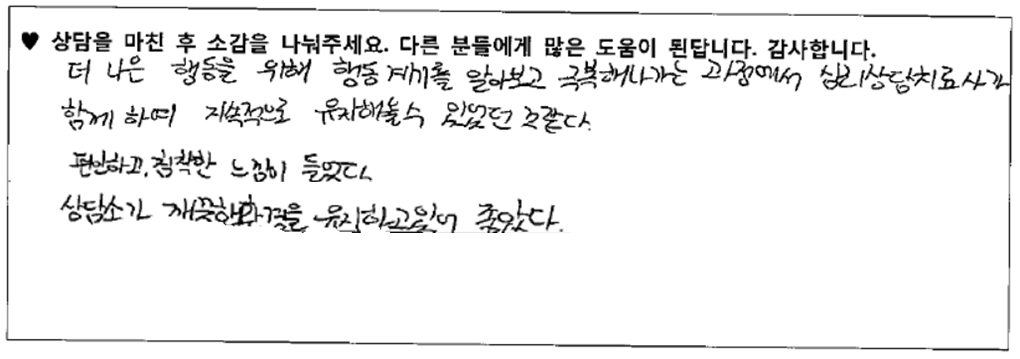 ♥ 상담을 마친 후 소감을 나눠주세요. 다른 분들에게 많은 도움이 된답니다. 감사합니다.
더 나은 행동을 위해 행동 계기를 알아보고 극복해나가는 과정에서 심리상담치료사가
함께 하며 지속적으로 유지해올수 있었던 것같다.
편안하고, 침착한 느낌이 들었다.
상담소가 깨끗한환경을 유지하고있어 좋았다.